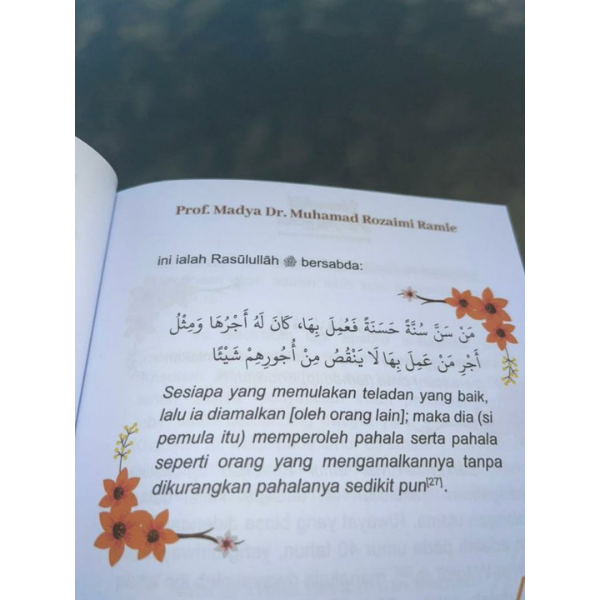 Prof. Madya Dr. Muhamad Rozaimi Ramle
ini ialah Rasūlullāh ﷺ bersabda:
مَنْ سَنَّ سُنَّةً حَسَنَةً فَعُمِلَ بِهَا، كَانَ لَهُ أَجْرُهَا وَمِثْلُ
أَجْرِ مَنْ عَمِلَ بِهَا لَا يَنْقُصُ مِنْ أُجُورِهِمْ شَيْئًا
Sesiapa yang memulakan teladan yang baik,
lalu ia diamalkan [oleh orang lain]; maka dia (si
pemula itu) memperoleh pahala serta pahala
seperti orang yang mengamalkannya tanpa
dikurangkan pahalanya sedikit pun[27].